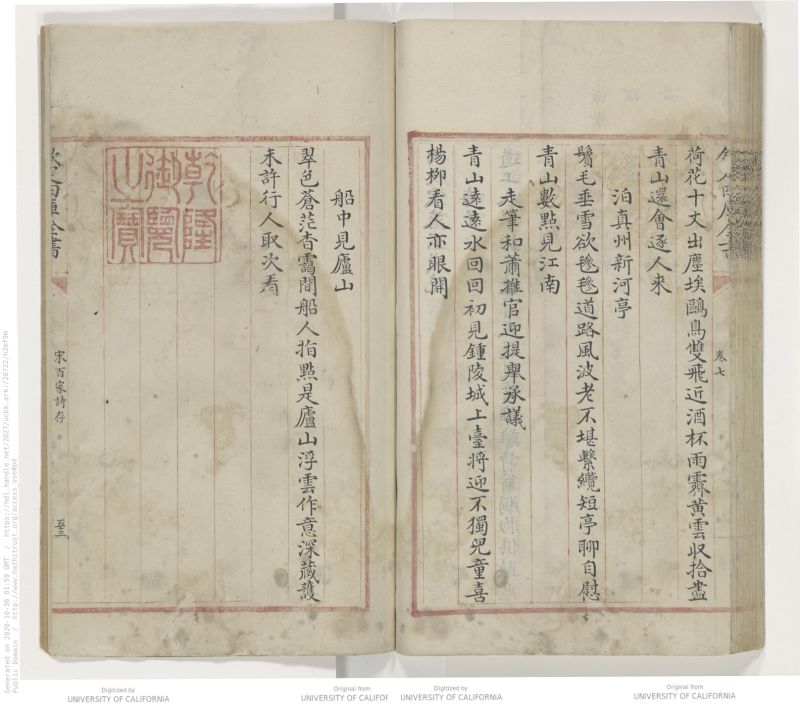 荷花十丈出塵埃鷗鳥雙飛近酒杯雨霽黄雲収拾盡
青山還會逐人来
泊真州新河亭
鬢毛垂雪欲毿毿道路風波老不堪繫纜短亭聊自慰
青山數點見江南
走筆和蕭推官迎提舉承議
青山遠遠水回回初見鍾陵城上臺将迎不獨兒童喜
楊柳看人亦眼開
卷七
船中見廬山
翠色蒼茫杳靄間船人指點是廬山浮雲作意深藏護
未許行人取次看
乾隆御覽之寶
欽定四庫全書
宋百家詩存
Digitized by
UNIVERSITY OF CALIFORNIA
Original from
UNIVERSITY OF CALIFOR
Digitized by
UNIVERSITY OF CALIFORNIA
Original from
UNIVERSITY OF CALIFORNIA
Generated on 2020-10-30 01:59 GMT / https://hdl.handle.net/2027/ucbk.ark:/28722/h2mf9m
Public Domain / http://www.hathitrust.org/access_use#pd